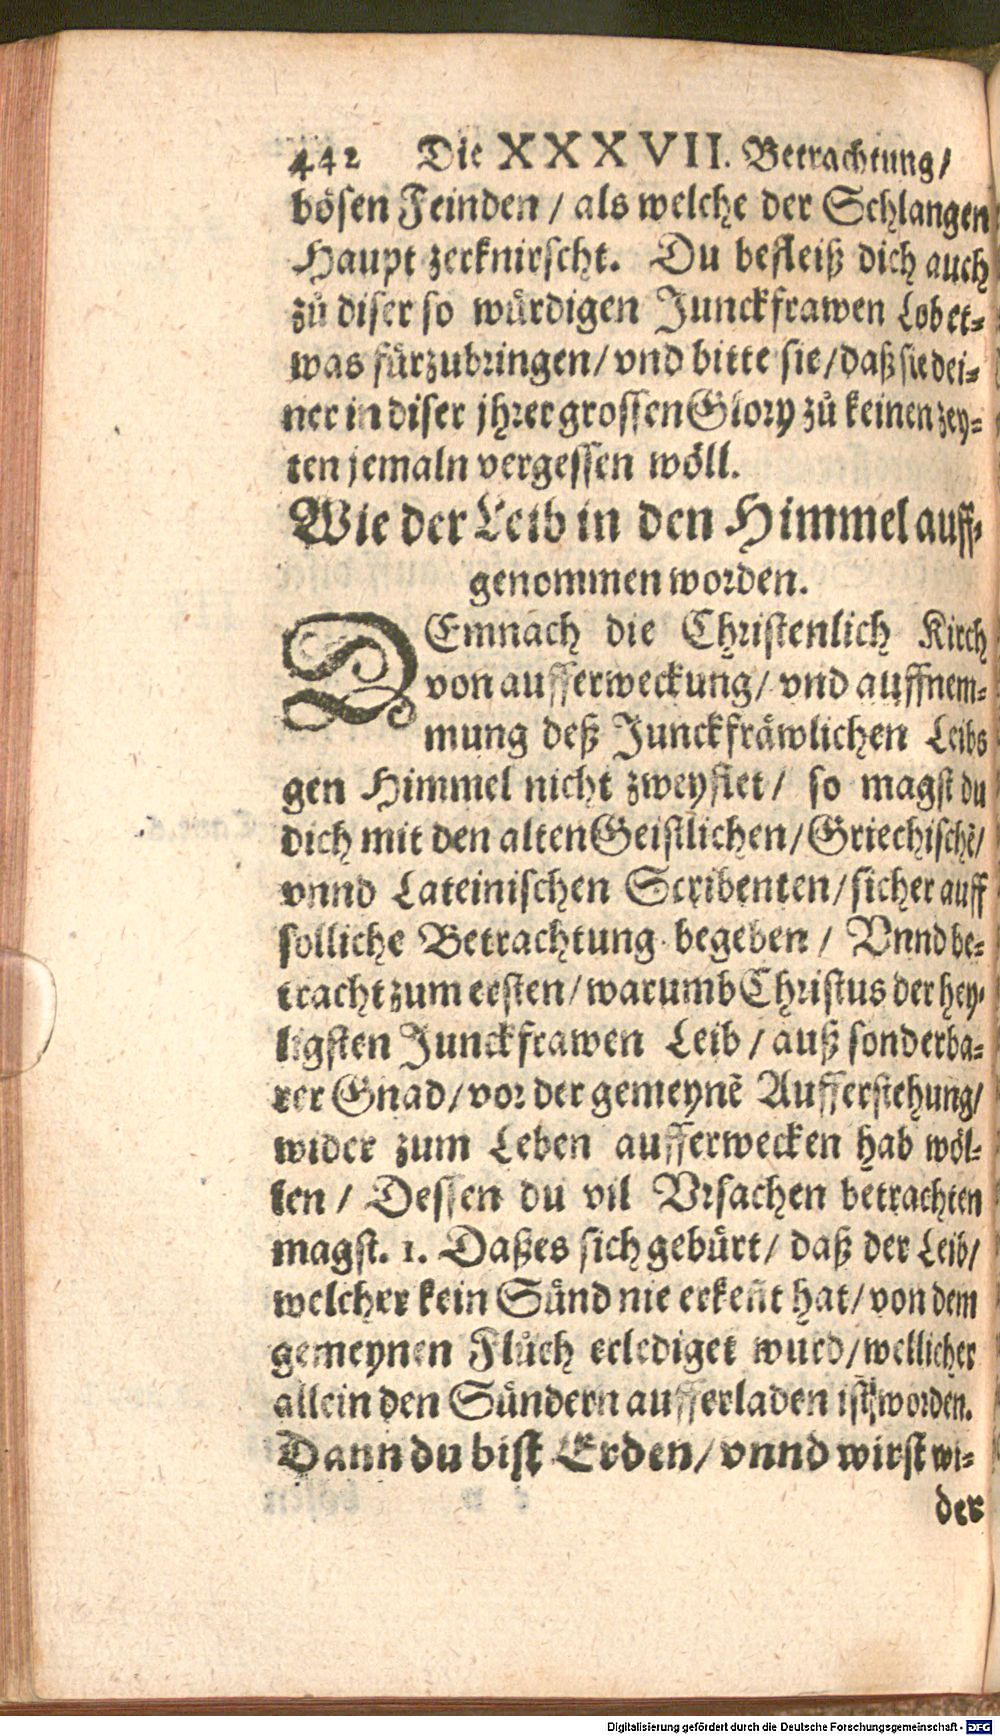 442 Die XXXVII. Betrachtung/
bösen Feinden / als welche der Schlangen
Haupt zerknirscht. Du befleiß dich auch
zů diser so würdigen Junckfrawen Lob et-
was fürzubringen/ vnd bitte sie/ daß sie dei-
ner in diser jhrer grossen Glory zů keinen zey-
ten jemaln vergessen wöll.
Wie der Leib in den Himmel auff-
genommen worden.
DEmnach die Christenlich Kirch
von aufferweckung/ vnd auffnem-
mung deß Junckfräwlichen Leibs
gen Himmel nicht zweyflet/ so magst du
dich mit den alten Geistlichen/ Griechischẽ/
vnnd Lateinischen Scribenten/ sicher auff
solliche Betrachtung begeben / Vnnd be-
tracht zum ersten/ warumb Christus der hey-
ligsten Junckfrawen Leib / auß sonderba-
rer Gnad/ vor der gemeynẽ Aufferstehung/
wider zum Leben aufferwecken hab wöl-
len / Dessen du vil Vrsachen betrachten
magst. 1. Daß es sich gebürt/ daß der Leib/
welcher kein Sünd nie erkeñt hat/ von dem
gemeynen Flůch erlediget wurd/ wellicher
allein den Sündern aufferladen ist worden.
Dann du bist Erden/ vnnd wirst wi-
der
Digitalisierung gefördert durch die Deutsche Forschungsgemeinschaft - DFG